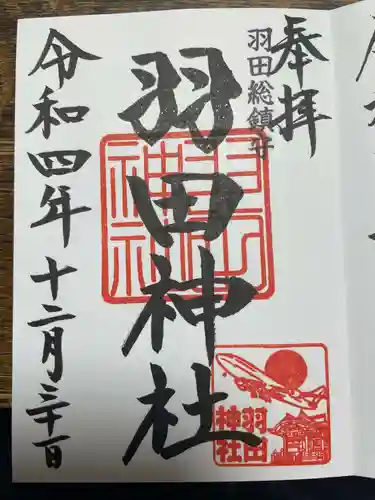 奉拝
羽田総鎮守
羽田神社
羽田神社
羽田神社
令和四年十二月三十日